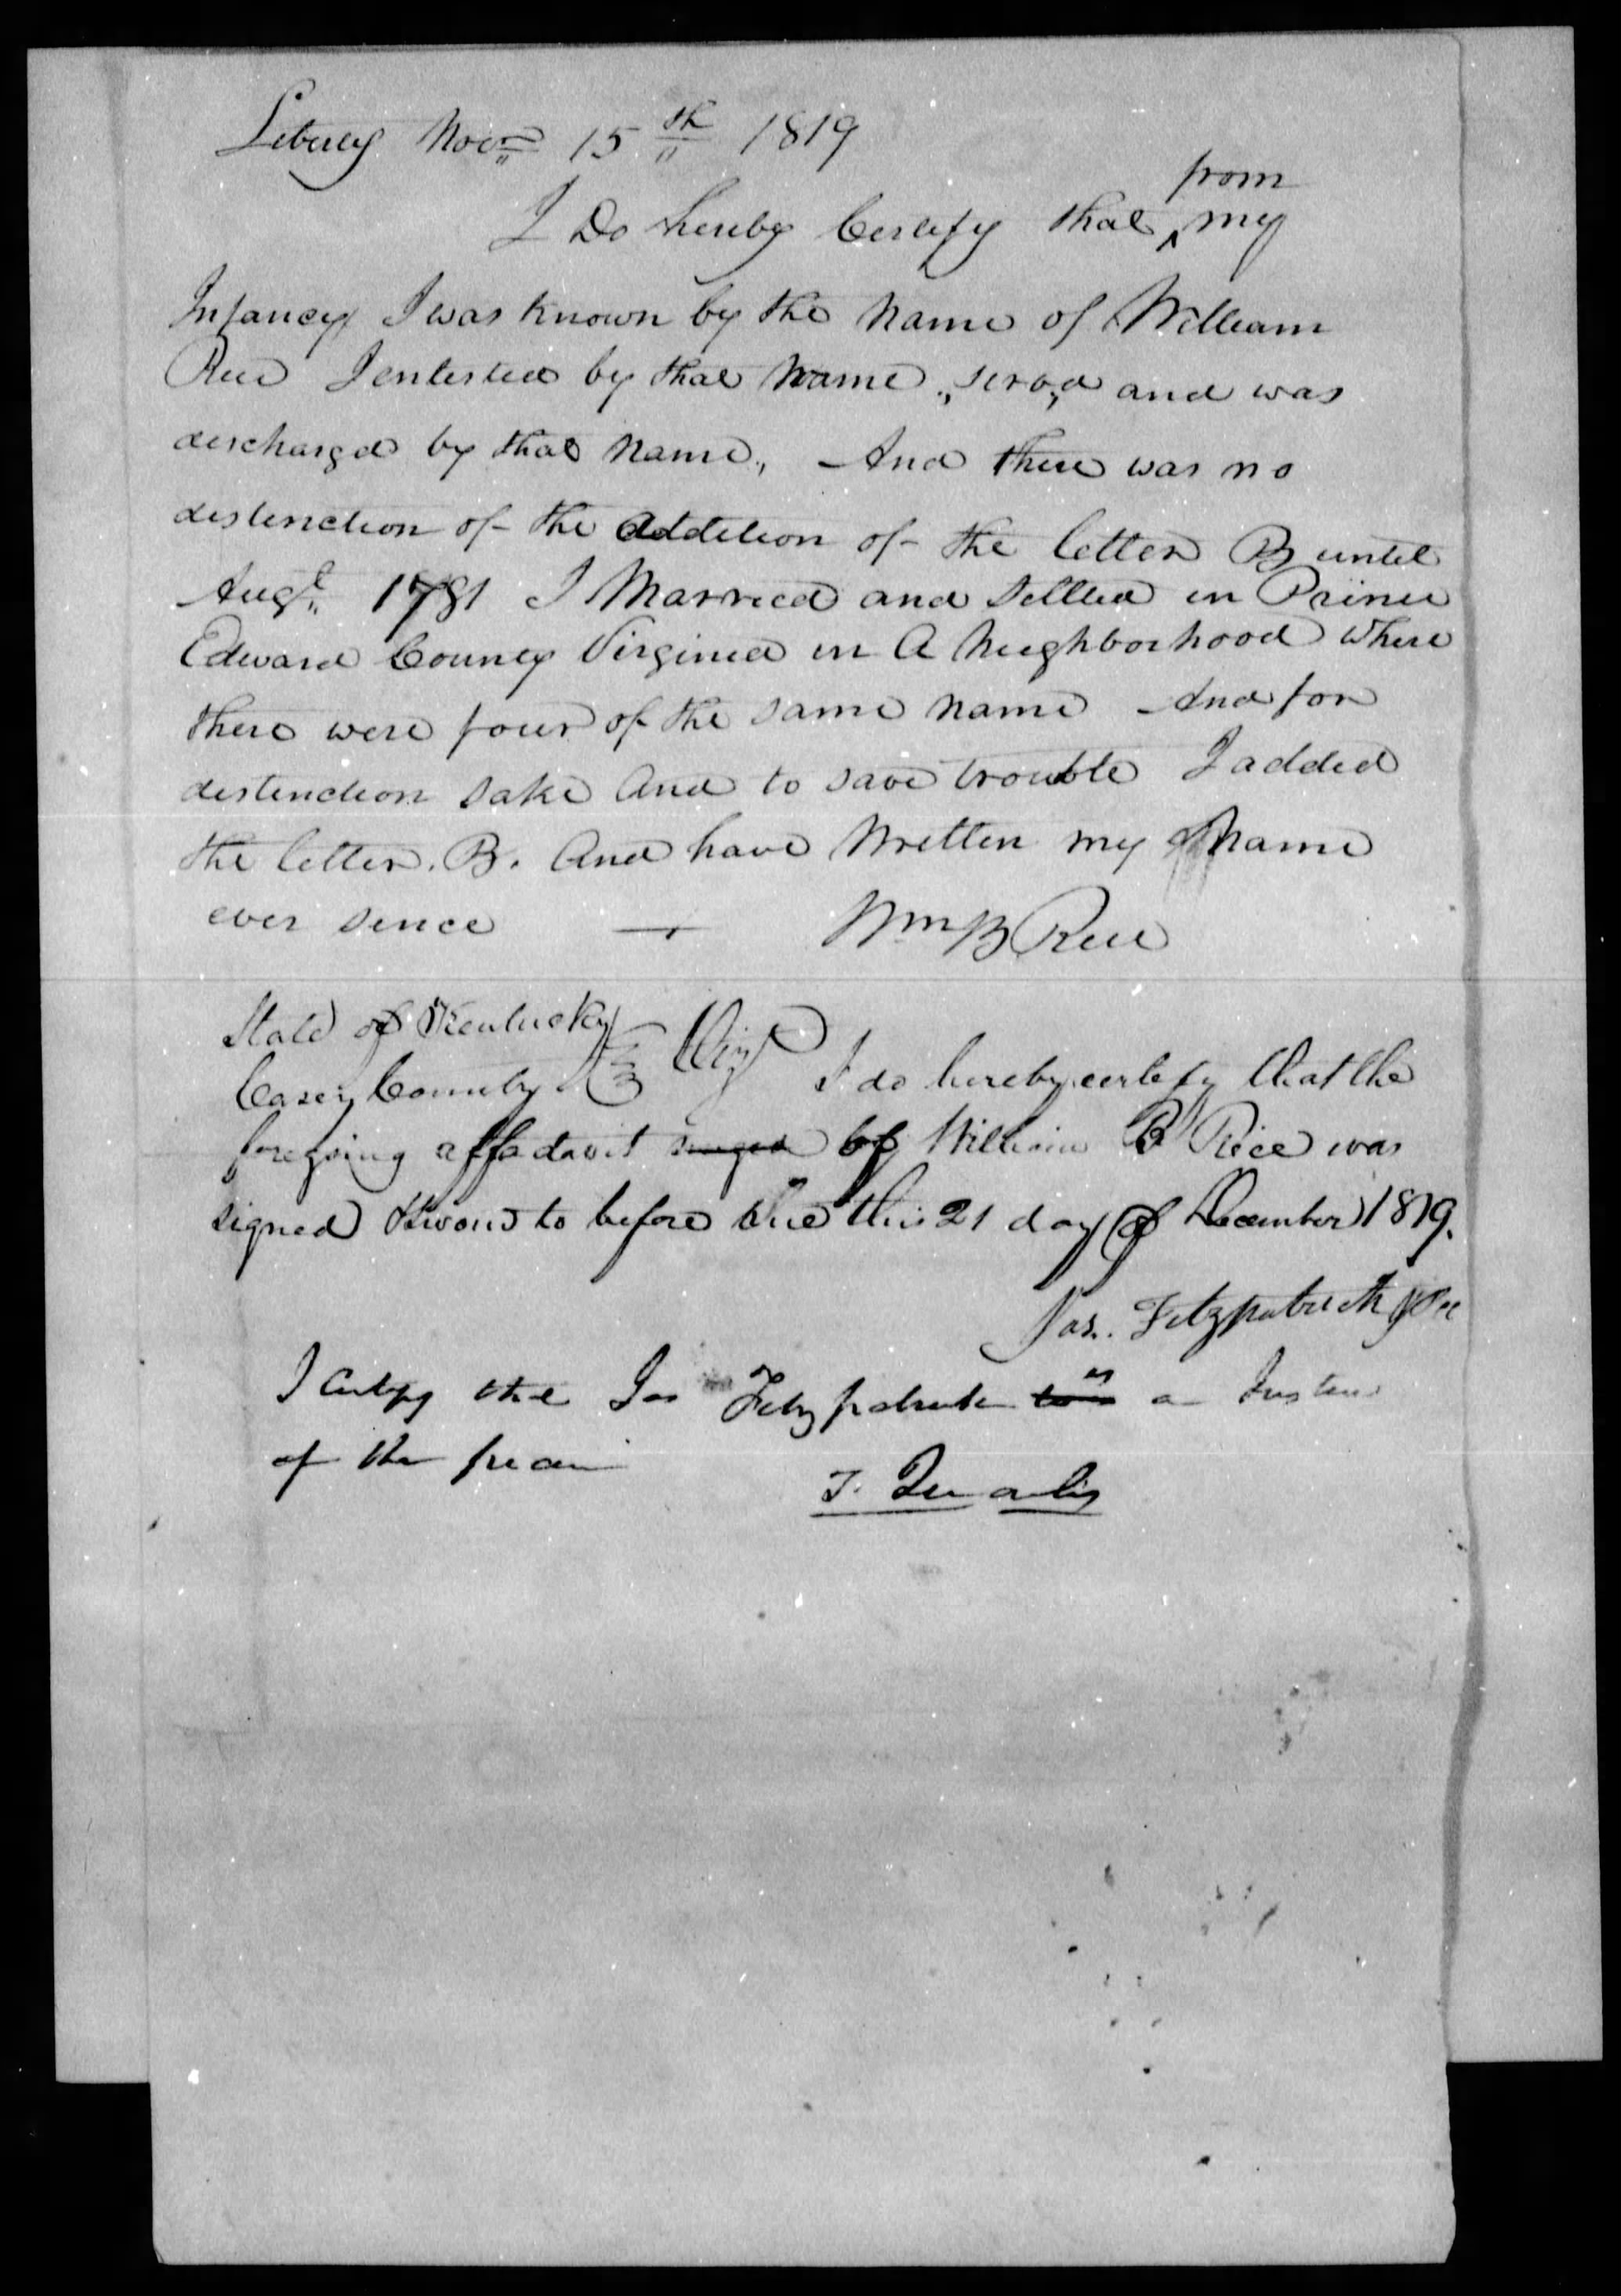 Liberty Novr 15th 1819
I Do hereby Certify that from my
Infancy I was known by the Name of William
Rice I enlisted by that Name, serv,d and was
discharg'd by that Name, And there was no
distinction of the addition of the letter B until
Augt 1781 I Married and Settled in Prince
Edward County Virginia in A Neighborhood Where
there were four of the same name And for
distinction sake And to save trouble I added
the letter. B. And have Written my Name
ever since — Wm B Rice
State of Kentucky
Casey County Viz I do hereby certify that the
foregoing affidavit by William B Rice was
signed & sword to before me this 21 day of December 1819.
Jas. Fitzpatrick JPCC
I Certify that Jas Fitzpatrick is a Justice
of the peace